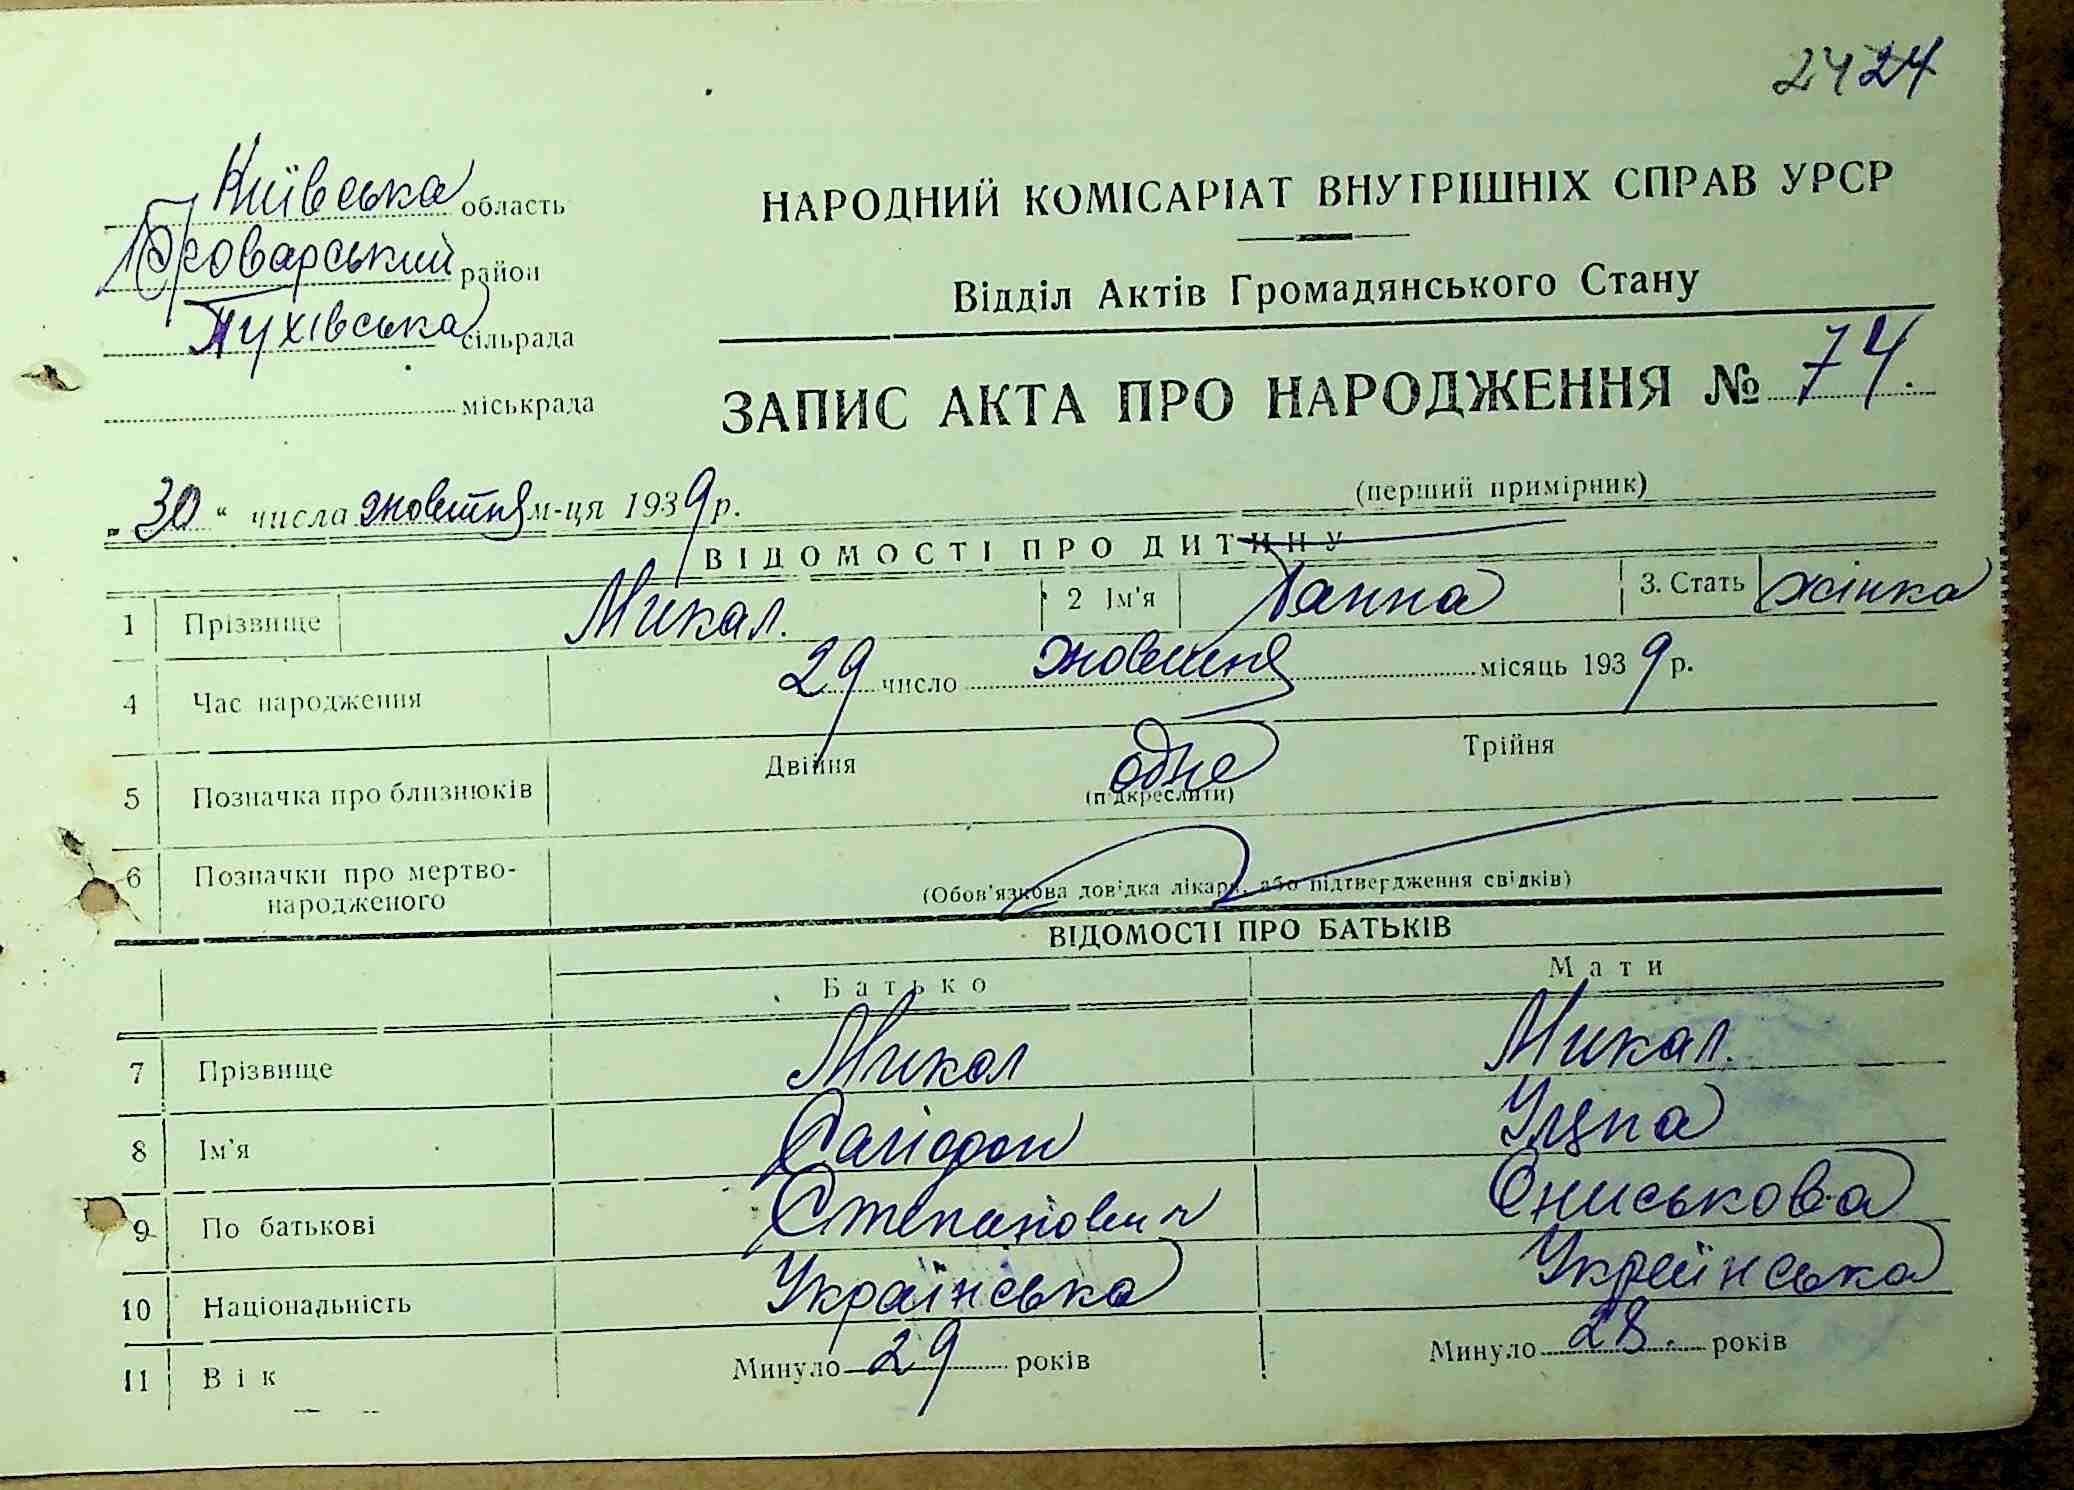 24 24
Київська область
Броварський район
Пухівська сільрада
міськрада
НАРОДНИЙ КОМІСАРІАТ ВНУТРІШНІХ СПРАВ УРСР
Відділ Актів Громадянського Стану
ЗАПИС АКТА ПРО НАРОДЖЕННЯ № 74.
„30“ числа жовтня м-ця 1939 р.
(перший примірник)
ВІДОМОСТІ ПРО ДИТИНУ
1 Прізвище Микал. 2 Ім'я Ганна 3. Стать жінка
4 Час народження 29 число жовтня місяць 1939 р.
5 Позначка про близнюків Двійня одне Трійня
(підкреслити)
6 Позначки про мертво-
народженого
(Обов'язкова довідка лікаря, або підтвердження свідків)
ВІДОМОСТІ ПРО БАТЬКІВ
Батько Мати
7 Прізвище Микал Микал.
8 Ім'я
9 По батькові Степанович Ониськова
10 Національність Українська Українська
11 Вік Минуло 29 років Минуло 28. років